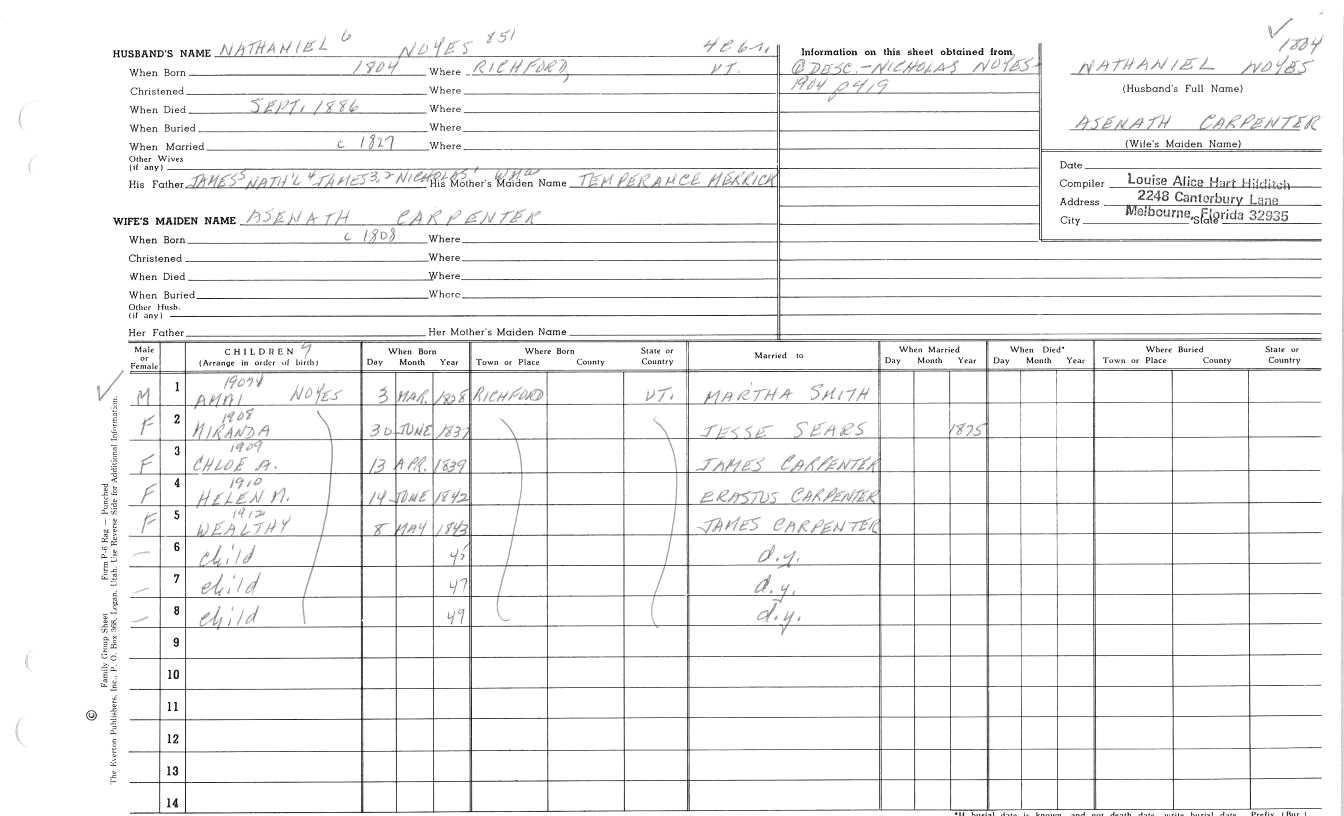 1804
HUSBAND'S NAME NATHANIEL 6 NOYES 851
When Born 1804 Where RICHFORD, VT.
Christened Where
When Died SEPT. 1886 Where
When Buried Where
When Married c 1827 Where
Other Wives
(if any)
His Father JAMES5 NATH'L4 JAMES3,2 NICHOLAS1 His Mother's Maiden Name TEMPERANCE MERRICK
WIFE'S MAIDEN NAME ASENATH CARPENTER
When Born c 1808 Where
Christened Where
When Died Where
When Buried Where
Other Husb.
(if any)
Her Father Her Mother's Maiden Name
Information on this sheet obtained from
DESC.-NICHOLAS NOYES-
1904 p419
NATHANIEL NOYES
(Husband's Full Name)
ASENATH CARPENTER
(Wife's Maiden Name)
Date
Compiler Louise Alice Hart Hilditch
Address 2248 Canterbury Lane
City Melbourne, Florida 32935 State
Male or Female CHILDREN (Arrange in order of birth) When Born Day Month Year Where Born Town or Place County State or Country Married to When Married Day Month Year When Died* Day Month Year Where Buried Town or Place County State or Country
1907
M 1 AMAI NOYES 3 MAR. 1828 RICHFORD VT. MARTHA SMITH
1908
F 2 MIRANDA 30 JUNE 1837 JESSE SEARS 1875
1909
F 3 CHLOE A. 13 APR. 1839 JAMES CARPENTER
1910
F 4 HELEN M. 14 JUNE 1842 ERASTUS CARPENTER
1912
F 5 WEALTHY 8 MAY 1843 JAMES CARPENTER
— 6 child 45 d.y.
— 7 child 47 d.y.
— 8 child 49 d.y.
9
10
11
12
13
14
Family Group Sheet Form P-6 Rag — Punched
© The Everton Publishers, Inc., P. O. Box 368, Logan, Utah. Use Reverse Side for Additional Information.
*If burial date is known, and not death date, write burial date. Prefix (Bur.)